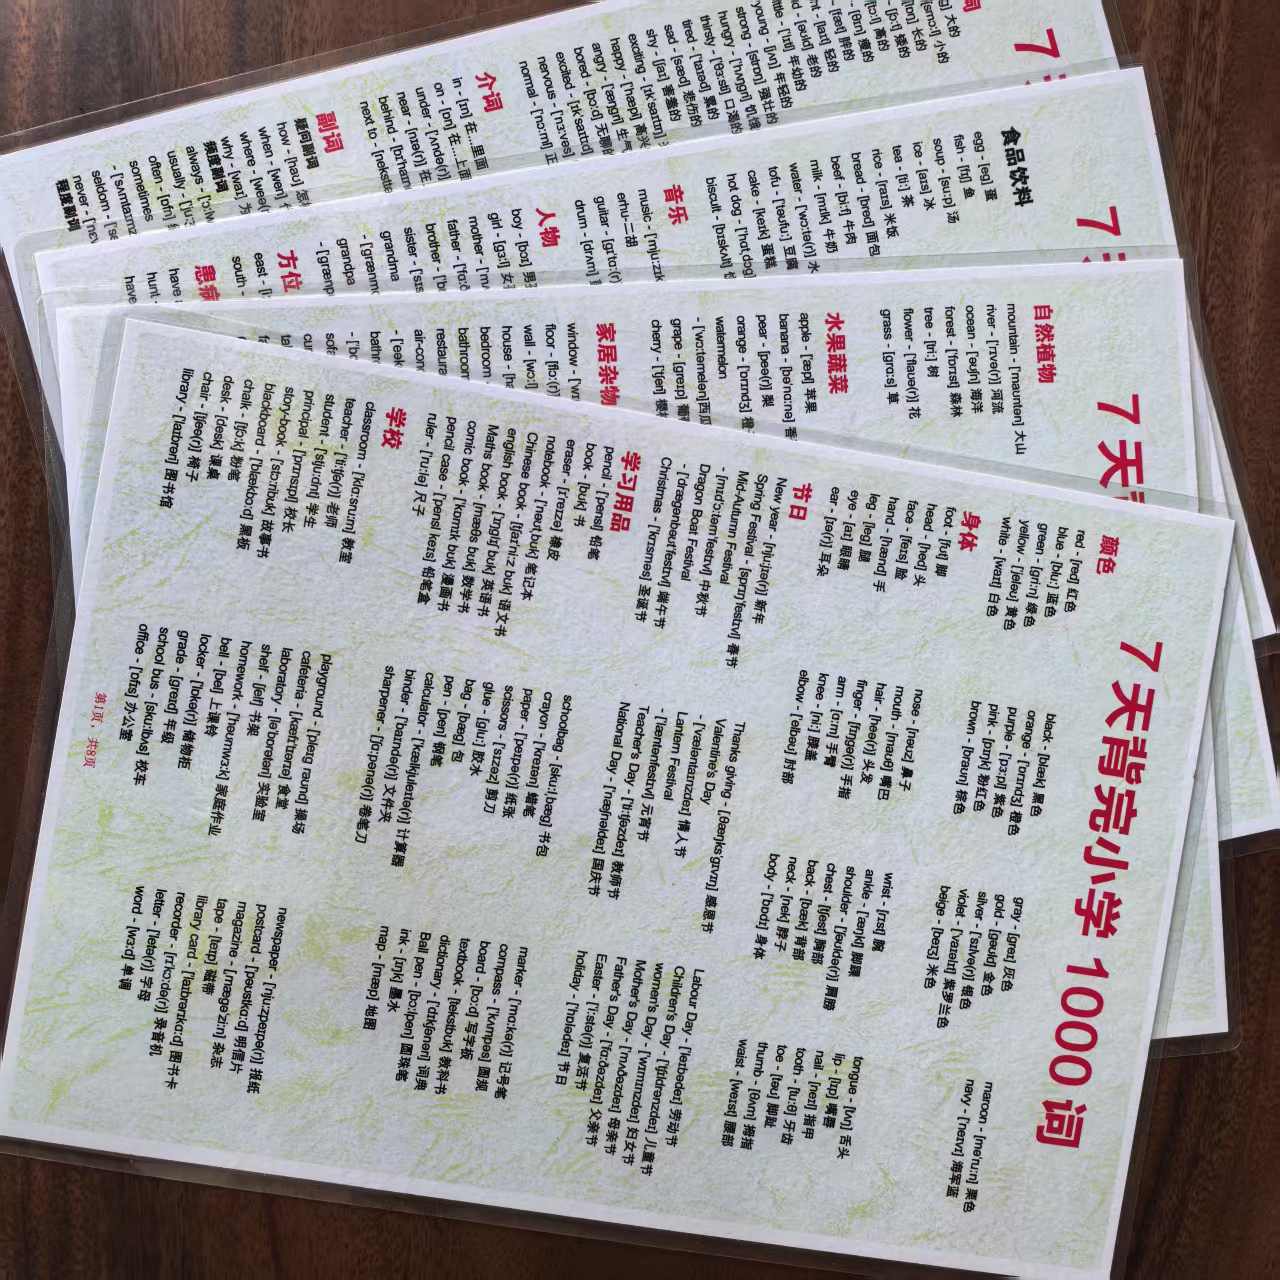 7 天背完小学 1000 词
颜色
red - [red] 红色
blue - [blu:] 蓝色
green - [gri:n] 绿色
yellow - ['jeləʊ] 黄色
white - [waɪt] 白色
black - [blæk] 黑色
orange - ['ɒrɪndʒ] 橙色
purple - ['pɜ:pl] 紫色
pink - [pɪŋk] 粉红色
brown - [braʊn] 棕色
gray - [greɪ] 灰色
gold - [gəʊld] 金色
silver - ['sɪlvə(r)] 银色
violet - ['vaɪələt] 紫罗兰色
beige - [beɪʒ] 米色
maroon - [mə'ru:n] 栗色
navy - ['neɪvɪ] 海军蓝
身体
foot - [fʊt] 脚
head - [hed] 头
face - [feɪs] 脸
hand - [hænd] 手
leg - [leg] 腿
eye - [aɪ] 眼睛
ear - [ɪə(r)] 耳朵
nose - [nəʊz] 鼻子
mouth - [maʊθ] 嘴巴
hair - [heə(r)] 头发
finger - ['fɪŋgə(r)] 手指
arm - [ɑ:m] 手臂
knee - [ni:] 膝盖
elbow - ['elbəʊ] 肘部
wrist - [rɪst] 腕
ankle - ['æŋkl] 脚踝
shoulder - ['ʃəʊldə(r)] 肩膀
chest - [tʃest] 胸部
back - [bæk] 背部
neck - [nek] 脖子
body - ['bɒdɪ] 身体
tongue - [tʌŋ] 舌头
lip - [lɪp] 嘴唇
nail - [neɪl] 指甲
tooth - [tu:θ] 牙齿
toe - [təʊ] 脚趾
thumb - [θʌm] 拇指
waist - [weɪst] 腰部
节日
New year - [nju:jɪə(r)] 新年
Spring Festival - [sprɪŋ'festɪvl] 春节
Mid-Autumn Festival
- [mɪd'ɔ:təm'festɪvl] 中秋节
Dragon Boat Festival
- ['drægənbəʊt'festɪvl] 端午节
Christmas - ['krɪsməs] 圣诞节
Thanks giving - [θæŋks'gɪvɪŋ] 感恩节
Valentine's Day
- ['væləntaɪnzdeɪ] 情人节
Lantern Festival
- ['læntənfestɪvl] 元宵节
Teacher's Day - ['ti:tʃəzdeɪ] 教师节
National Day - ['næʃnəldeɪ] 国庆节
Labour Day - ['leɪbədeɪ] 劳动节
Children's Day - ['tʃɪldrənzdeɪ] 儿童节
women's Day - ['wɪmɪnzdeɪ] 妇女节
Mother's Day - ['mʌðəzdeɪ] 母亲节
Father's Day - ['fɑ:ðəzdeɪ] 父亲节
Easter - ['i:stə(r)] 复活节
holiday - ['hɒlədeɪ] 节日
学习用品
pencil - ['pensl] 铅笔
book - [bʊk] 书
eraser - [ɪ'reɪzə] 橡皮
notebook - ['nəʊt,bʊk] 笔记本
Chinese book - [tʃaɪ'ni:z bʊk] 语文书
english book - ['ɪŋglɪʃ bʊk] 英语书
Maths book - [mæθs bʊk] 数学书
comic book - ['kɒmɪk bʊk] 漫画书
pencil case - ['pensl keɪs] 铅笔盒
ruler - ['ru:lə] 尺子
schoolbag - [sku:l,bæg] 书包
crayon - ['kreɪən] 蜡笔
paper - ['peɪpə(r)] 纸张
scissors - ['sɪzəz] 剪刀
glue - [glu:] 胶水
bag - [bæg] 包
pen - [pen] 钢笔
calculator - ['kælkjuleɪtə(r)] 计算器
binder - ['baɪndə(r)] 文件夹
sharpener - ['ʃɑ:pənə(r)] 卷笔刀
marker - ['mɑ:kə(r)] 记号笔
compass - ['kʌmpəs] 圆规
board - [bɔ:d] 写字板
textbook - [tekstbʊk] 教科书
dictionary - ['dɪkʃənərɪ] 词典
Ball pen - [bɔ:lpen] 圆珠笔
ink - [ɪŋk] 墨水
map - [mæp] 地图
学校
classroom - ['klɑ:sru:m] 教室
teacher - ['ti:tʃə(r)] 老师
student - ['stju:dnt] 学生
principal - ['prɪnsɪpl] 校长
story-book - ['stɔ:rɪbʊk] 故事书
blackboard - ['blækbɔ:d] 黑板
chalk - [tʃɔ:k] 粉笔
desk - [desk] 课桌
chair - [tʃeə(r)] 椅子
library - ['laɪbrərɪ] 图书馆
playground - ['pleɪg raʊnd] 操场
cafeteria - [kæfɪ'tɪərɪə] 食堂
laboratory - [lə'bɒrətərɪ] 实验室
shelf - [ʃelf] 书架
homework - ['həʊmwɜ:k] 家庭作业
bell - [bel] 上课铃
locker - ['lɒkə(r)] 储物柜
grade - [greɪd] 年级
school bus - [sku:lbʌs] 校车
office - ['ɒfɪs] 办公室
newspaper - ['nju:zpeɪpə(r)] 报纸
postcard - ['pəʊstkɑ:d] 明信片
magazine - [ˌmægə'zi:n] 杂志
tape - [teɪp] 磁带
library card - ['laɪbrərɪkɑ:d] 图书卡
recorder - [rɪ'kɔ:də(r)] 录音机
letter - ['letə(r)] 字母
word - [wɜ:d] 单词
第1页, 共8页
7 天
自然植物
mountain - ['maʊntən] 大山
river - ['rɪvə(r)] 河流
ocean - ['əʊʃn] 海洋
forest - ['fɒrɪst] 森林
tree - [tri:] 树
flower - ['flaʊə(r)] 花
grass - [grɑ:s] 草
水果蔬菜
apple - ['æpl] 苹果
banana - [bə'nɑ:nə] 香
pear - [peə(r)] 梨
orange - ['ɒrɪndʒ] 橙
watermelon
- ['wɔ:təmelən]西瓜
grape - [greɪp] 葡
cherry - ['tʃerɪ] 樱
家居杂物
window - ['wɪ
floor - [flɔ:(r)
wall - [wɔ:l]
house - [ha
bedroom -
bathroom
restaura
air-con
7
食品饮料
egg - [eg] 蛋
fish - [fɪʃ] 鱼
soup - [su:p] 汤
ice - [aɪs] 冰
tea - [ti:] 茶
rice - [raɪs] 米饭
bread - [bred] 面包
beef - [bi:f] 牛肉
milk - [mɪlk] 牛奶
water - ['wɔ:tə(r)] 水
tofu - ['təʊfu:] 豆腐
cake - [keɪk] 蛋糕
hot dog - ['hɒt,dɔg]
biscuit - [bɪskɪt]
音乐
music - ['mju:zɪk
guitar - [gɪ'tɑ:(r)
erhu-二胡
drum - [drʌm]
人物
boy - [bɔɪ] 男
girl - [gɜ:l] 女
mother - ['mʌ
father - ['fɑ:
brother - ['b
sister - ['sɪs
grandma
- ['grænmɑ
grandpa
- ['grænp
方位
east - [i:
south -
患病
have
hunt -
have
7
young - [jʌŋ] 年轻的
strong - [strɒŋ] 强壮的
hungry - ['hʌŋgrɪ] 饥饿
thirsty - ['θɜ:stɪ] 口渴的
tired - ['taɪəd] 累的
sad - [sæd] 悲伤的
shy - [ʃaɪ] 害羞的
exciting - [ɪk'saɪtɪŋ]
happy - ['hæpɪ] 高兴
angry - ['æŋgrɪ] 生气
bored - [bɔ:d] 无聊的
excited - [ɪk'saɪtɪd]
nervous - ['nɜ:vəs]
normal - ['nɔ:ml] 正
介词
in - [ɪn] 在...里面
on - [ɒn] 在...上面
under - ['ʌndə(r)] 在
near - [nɪə(r)] 在
behind - [bɪ'haɪn
next to - [nekstt
副词
疑问副词
how - [haʊ] 怎
when - [wen]
where - [weə(r)
why - [waɪ] 为
频度副词
always - ['ɔ:lw
usually - ['ju:ʒ
often - ['ɒfn]
sometimes
- ['sʌmtaɪmz
seldom - ['se
never - ['nev
程度副词